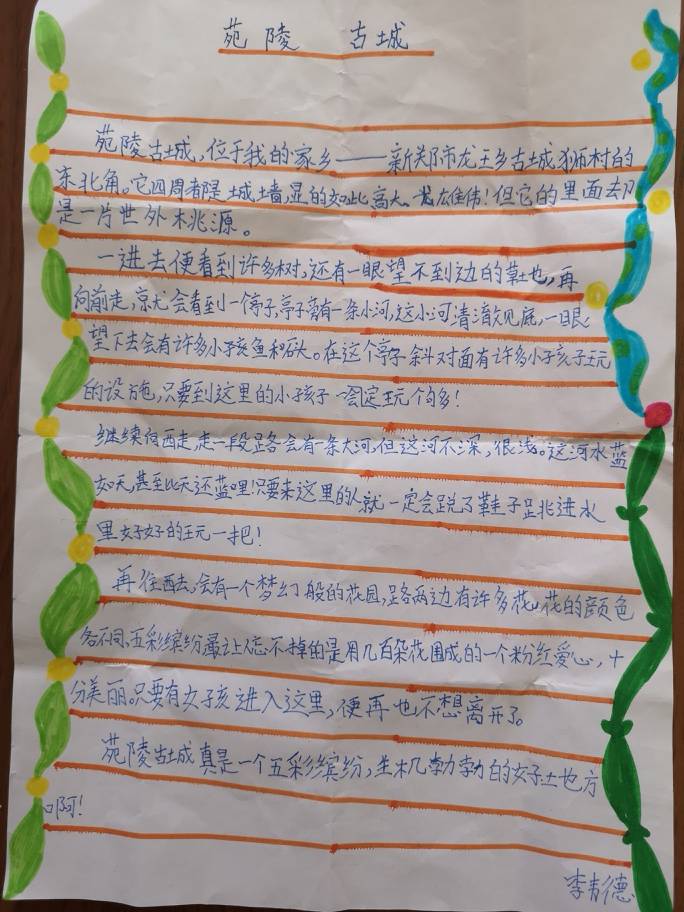 苑陵 古城
苑陵古城，位于我的家乡——新郑市龙王乡古城狮村的
东北角。它四周都是城墙，显的如此高大、宏伟！但它的里面却
是一片世外桃源。
一进去便看到许多树，还有一眼望不到边的草地，再
向前走，就会看到一个亭子，亭子旁有一条小河，这小河清澈见底，一眼
望下去会有许多小孩鱼和石头。在这个亭子斜对面有许多小孩子玩
的设施，只要到这里的小孩子一会定玩个够！
继续向西走，走一段路会有一条大河，但这河不深，很浅。这河水蓝
如天，甚至比天还蓝哩！只要来这里的人就一定会脱了鞋子跳进水
里好好的玩一把！
再往西去，会有一个梦幻般的花园，路两边有许多花，花的颜色
各不同，五彩缤纷最让人忘不掉的是用几百朵花围成的一个粉红爱心，十
分美丽。只要有女孩进入这里，便再也不想离开了。
苑陵古城真是一个五彩缤纷，生机勃勃的好地方
啊！
李青德